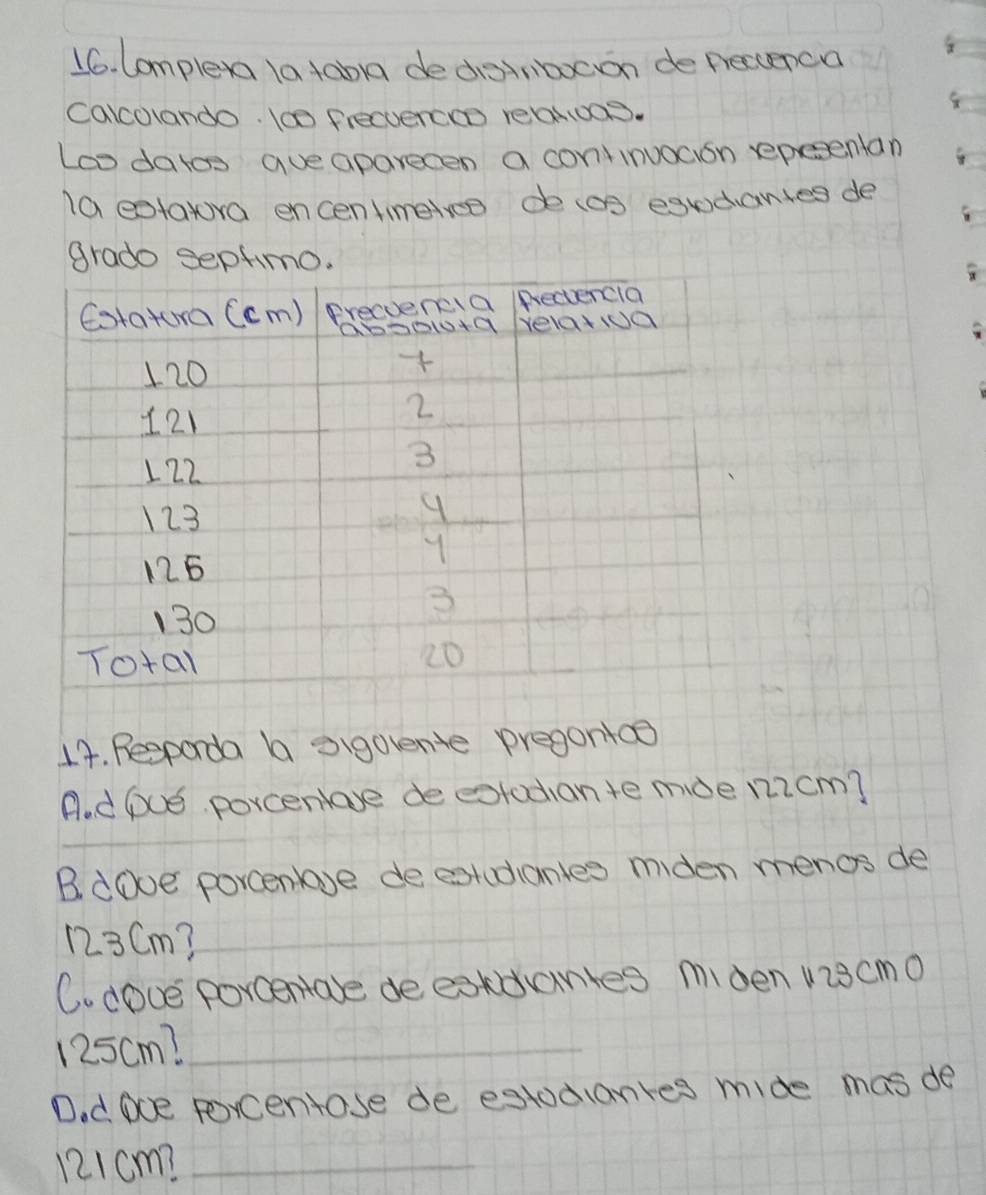 16. Completa la tabla de distribución de frecuencia
calculando las frecuencias relativas.
Los datos que aparecen a continuación representan
la estatura en centimetros de los estudiantes de
grado septimo.
Estatura (cm) Frecuencia absoluta Frecuencia relativa
120 +
121 2
122 3
123 4
125 4
130 3
Total 20
17. Responda la siguiente preguntas
A. ¿Qué porcentaje de estudiante mide 122cm?
B. ¿Que porcentaje de estudiantes miden menos de
123cm?
C. ¿Qué porcentaje de estudiantes miden 123cm o
125cm?
D. ¿Que porcentaje de estudiantes mide mas de
121cm?